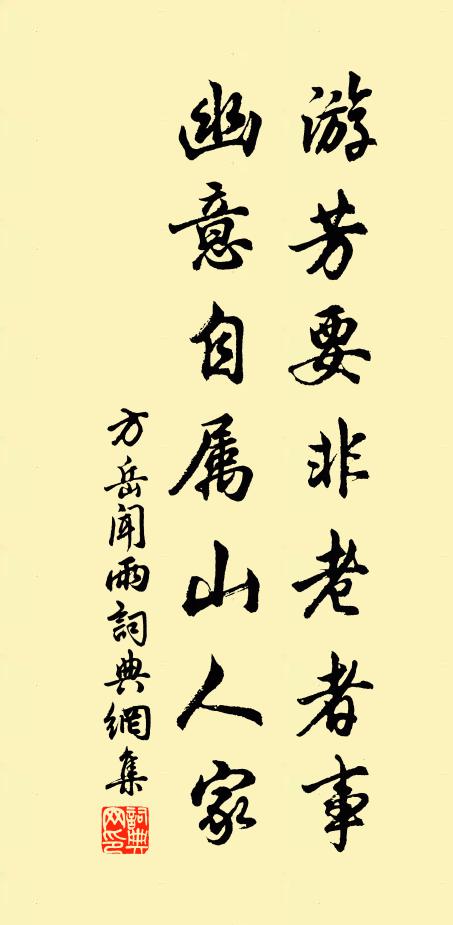 游芳要非老者事
幽意自属山人家
方岳闻雨詞典網集
詞典網印